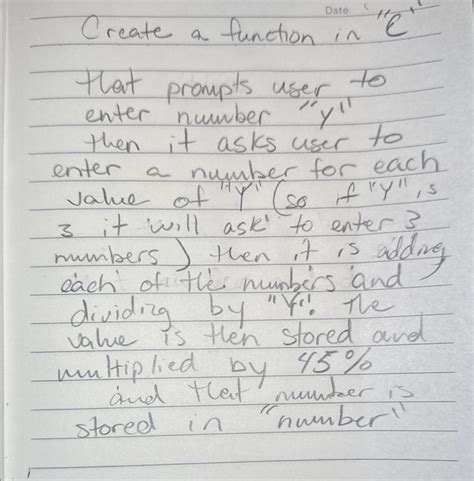 Date
Create a function in "C"
that prompts user to
enter number "y"
then it asks user to
enter a number for each
value of "Y" (so if "Y" is
3 it will ask to enter 3
numbers) then it is adding
each of the numbers and
dividing by "Y". The
value is then stored and
multiplied by 45%
and that number is
stored in "number"